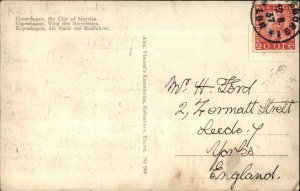 Copenhagen, the City of bicycles.
Copenhague, Ville des Bicyclettes.
Kopenhagen, die Stadt der Radfahrer.
Alex. Vincent's Kunstforlag, København. Eneret. Nr
20 ØRE
Mr. H. Ford
2, Zermatt Street
Leeds. 7
Yorks
England.